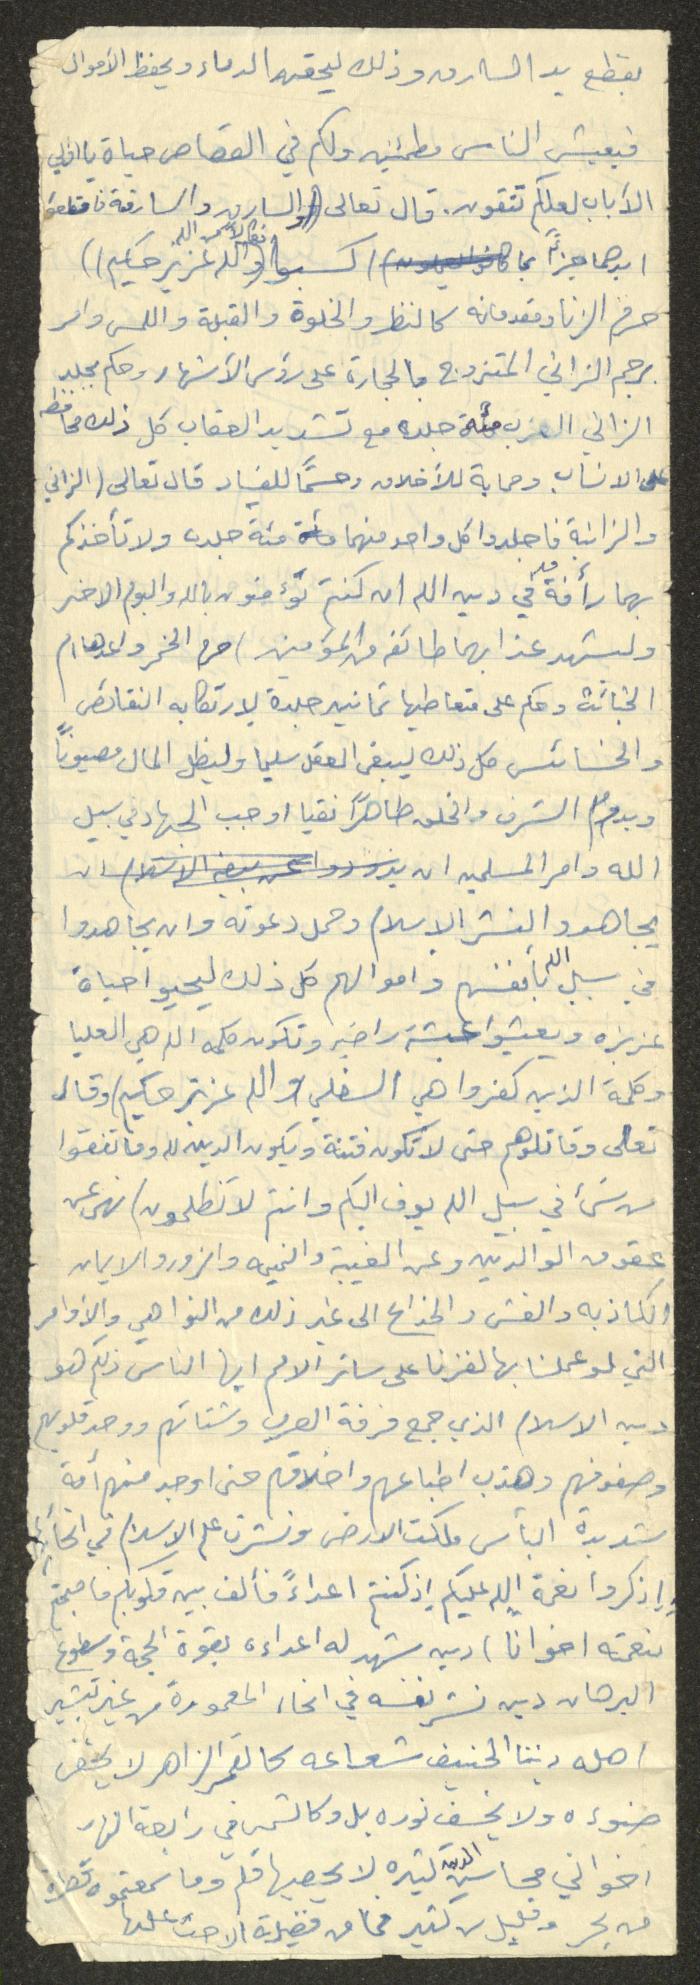 بقطع يد السارق وذلك ليحقن الدماء ويحفظ الأموال
فيعيش الناس مطمئنين ولكم في القصاص حياة يا اولي
الألباب لعلكم تتقون. قال تعالى ((والسارق والسارقة فاقطعوا
ايديهما جزاءً بما كسبوا نكالاً من الله والله عزيز حكيم))
حرم الزنا ومقدماته كالنظر والخلوة والقبلة واللمس وامر
برجم الزاني المتزوج بالحجارة على رؤس الأشهاد وحكم بجلد
الزاني العزب مئة جلده مع تشديد العقاب كل ذلك محافظه
على الانساب وحماية للأخلاق وحسمًا للفساد قال تعالى (الزاني
والزانية فاجلدوا كل واحد منهما مئة جلده ولا تأخذكم
بهما رأفة في دين الله ان كنتم تؤمنون بالله واليوم الاخر
وليشهد عذابهما طائفه من المؤمنين) حرم الخمر وعدها ام
الخبائث وحكم على متعاطيها ثمانين جلدة لارتكابه النقائص
والخسائس كل ذلك ليبقى العقل سليما وليظل المال مصيونًا
ويدوم الشرف والخلق طاهرًا نقيا اوجب الجهاد في سبيل
الله وامر المسلمين ان يذودوا عن بيضة الاسلام ان
يجاهدوا لنشر الاسلام وحمل دعوته وان يجاهدوا
في سبيل الله بأنفسهم واموالهم كل ذلك ليحيوا حياة
عزيزه ويعيشوا عيشة راضيه وتكون كلمه الله هي العليا
وكلمة الذين كفروا هي السفلي والله عزيز حكيم) وقال
تعالى وقاتلوهم حتى لا تكون فتنة ويكون الدين لله وما تنفقوا
من شئ في سبيل الله يوف اليكم وانتم لا تظلمون) نهى عن
عقوق الوالدين وعن الغيبة والنميمه والزور والايمان
الكاذبه والغش والخداع الى غير ذلك من النواهي والأوامر
التي لو عملنا بها لفزنا على سائر الامم ايها الناس ذلكم هو
دين الاسلام الذي جمع فرقة العرب وشتاتهم ووحد قلوبهم
وصفوفهم وهذب اطباعهم واخلاقهم حتى اوجد منهم أمة
شديدة البأس ملكت الارض ونشرت علم الاسلام في
إذكروا نعمة الله عليكم إذ كنتم اعداءً فألف بين قلوبكم فاصبحتم
بنعمته اخوانا) دين شهد له اعداءه بقوة الحجة وسطوع
البرهان دين نشر نفسه في انحاء المعمورة من غير تبشير
اهله ديننا الحنيف شعاعه كالقمر الزاهر لا يخفى
ضوءه ولا يخسف نوره بل وكالشمس في رابعة النهار
اخواني محاسن الدين كثيره لا يحصيها قلم وما سمعتموه قطرة
من بحر وقليل من كثير فما من فضيلة الا حث عليها